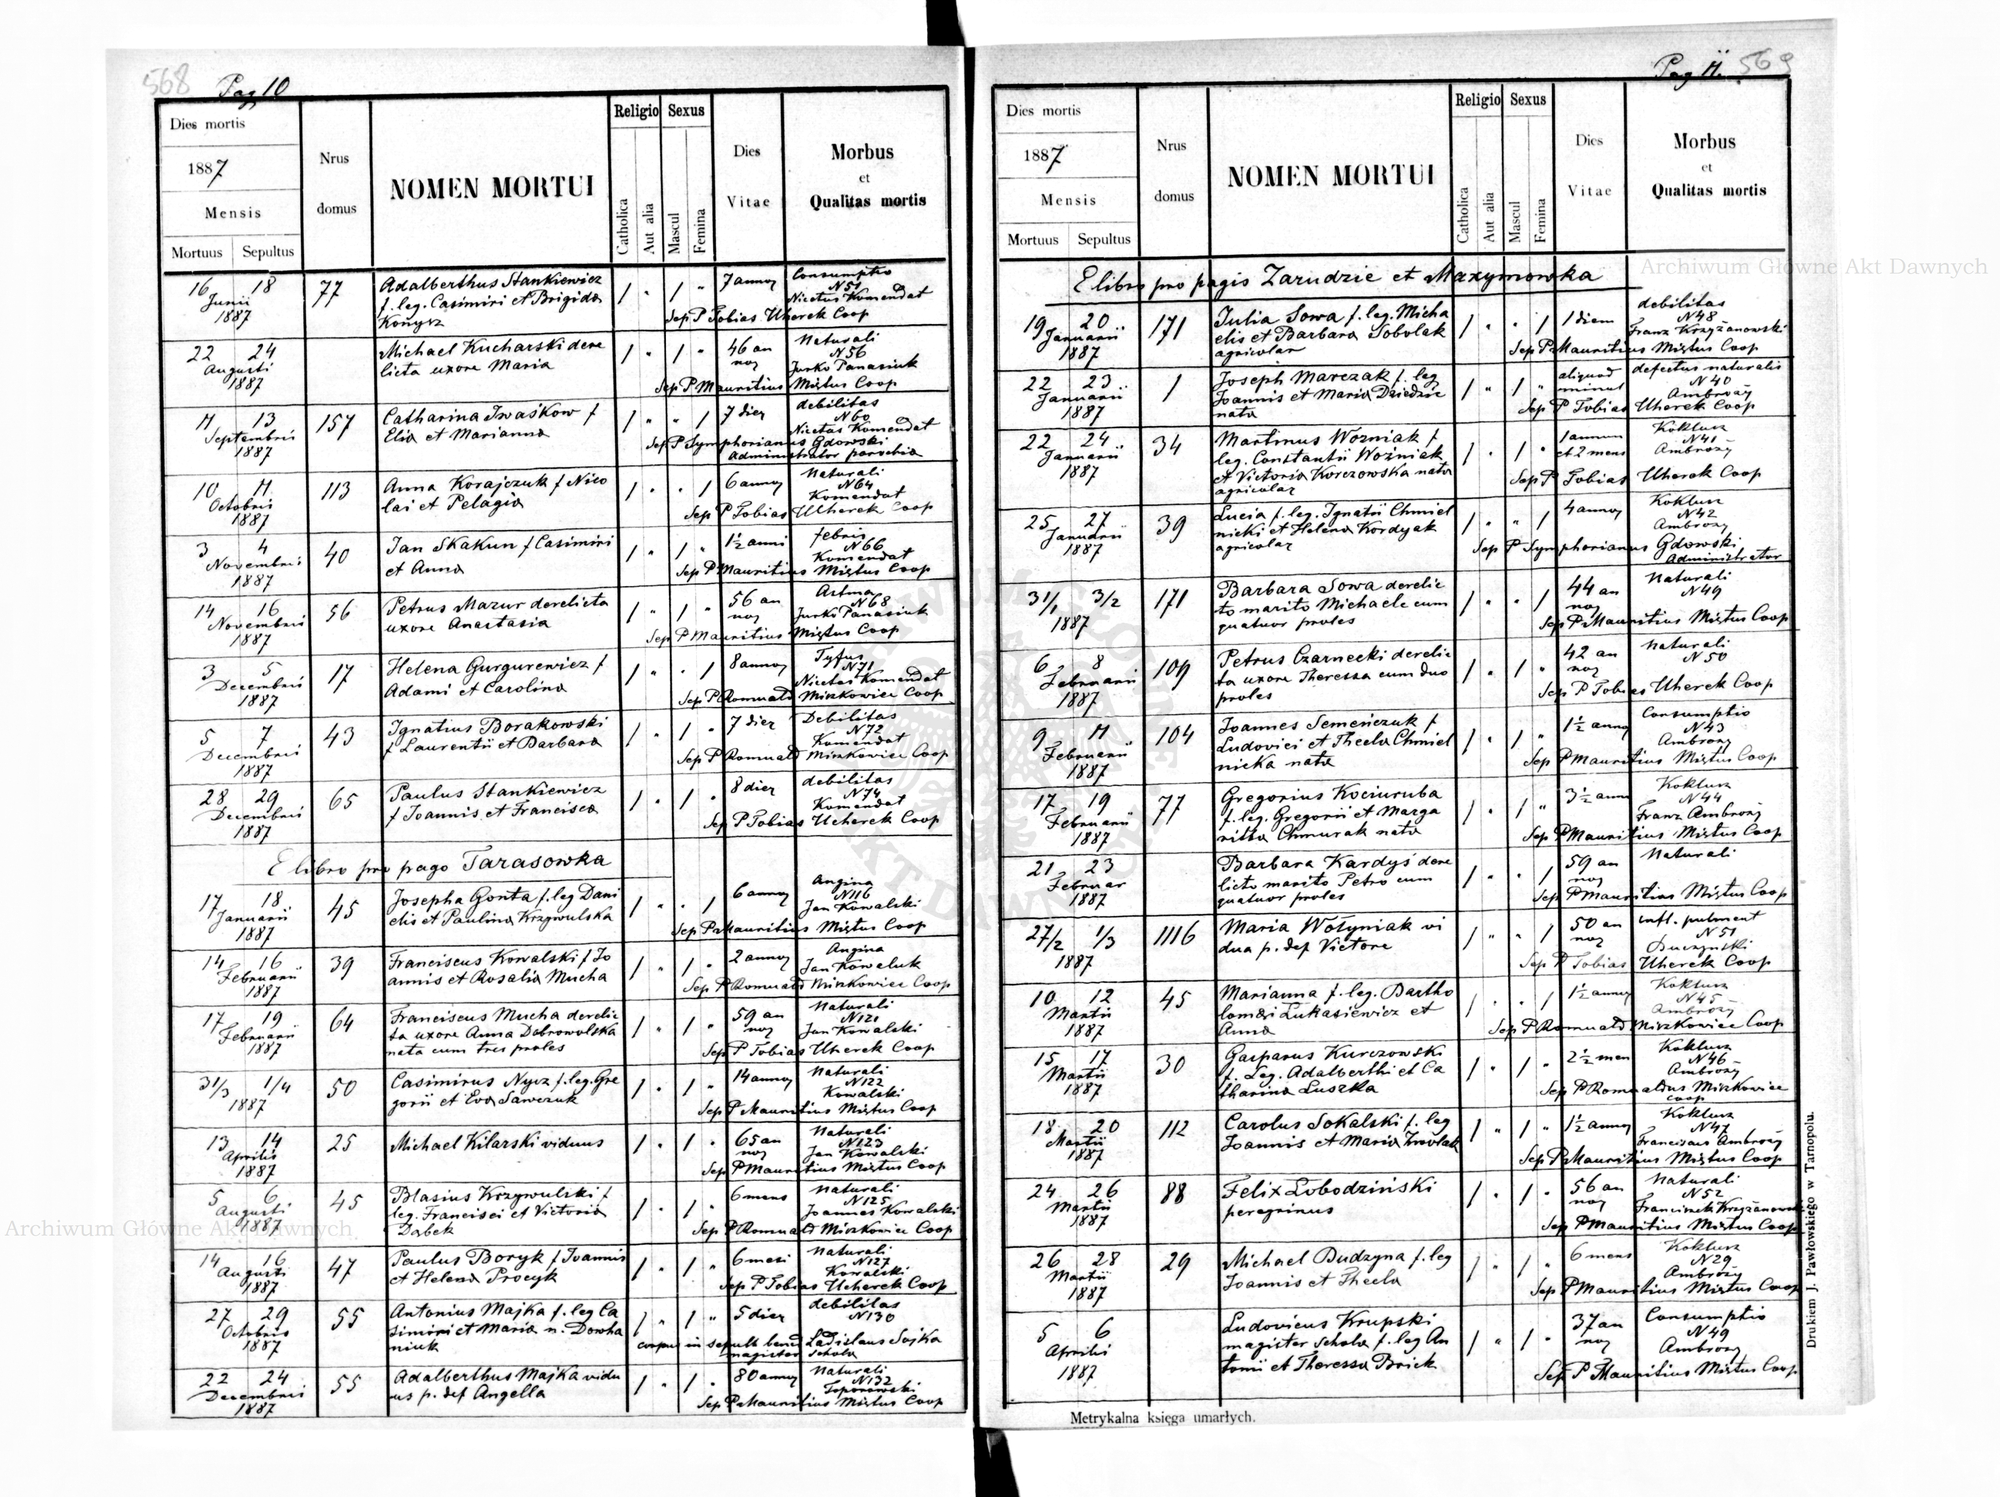 568 Pag 10
Dies mortis
1887
Mensis
Mortuus Sepultus
Nrus
domus
NOMEN MORTUI
Religio
Catholica
Aut alia
Sexus
Mascul
Femina
Dies
Vitae
Morbus
et
Qualitas mortis
16 18 77 Adalberthus Stankiewicz / " / " 7 annos Consumptio
Junii f. leg. Casimiri et Brigida N51
1887 Konycz Nicetus Komendat
Sep P Tobias Uherek Coop
22 24 Michael Kucharski dere / " / " 46 an Naturali
Augusti licta uxore Maria nos N56
1887 Jurko Panasiuk
Sep P Mauritius Mistus Coop
11 13 157 Catharina Iwaśkow f / " " / 7 dies debilitas
Septembris Elia et Marianna N60
1887 Nicetas Komendat
Sep P Symphorianus Gdowski
Administrator parochia
10 11 113 Anna Korajczuk f Nico / " " / 6 annos Naturali
Octobris lai et Pelagia N64
1887 Komendat
Sep P Tobias Uherek Coop
3 4 40 Jan Skakun f Casimiri / " / " 1½ anni febris
Novembris et Anna N66
1887 Komendat
Sep P Mauritius Mistus Coop
14 16 56 Petrus Mazur derelicta / " / " 56 an Astma
Novembris uxore Anastasia nos N68
1887 Jurko Panasiuk
Sep P Mauritius Mistus Coop
3 5 17 Helena Gurgurewicz f / " " / 8 annos Tyfus
Decembris Adami et Carolina N71
1887 Nicetas Komendat
Sep P Romuald Miszkowicz Coop
5 7 43 Ignatius Borakowski / " / " 7 dies Debilitas
Decembris f Laurentii et Barbara N72
1887 Komendat
Sep P Romuald Miszkowicz Coop
28 29 65 Paulus Stankiewicz / " / " 8 dies debilitas
Decembris f Joannis et Francisca N74
1887 Komendat
Sep P Tobias Ucherek Coop
E libro pro pago Tarasowka
17 18 45 Josepha Gonta f. leg Dani / " " / 6 annos Angina
Januarii elis et Paulina Krzywulska N116
1887 Jan Kowalski
Sep P Mauritius Mistus Coop
14 16 39 Franciscus Kowalski f Jo / " / " 2 annos Angina
Februarii annis et Rosalia Mucha Jan Kowaluk
1887 Sep P Romuald Miszkowicz Coop
17 19 64 Franciscus Mucha derelic / " / " 59 an Naturali
Februarii ta uxore Anna Dobrowolska nos N121
1887 nata cum tres proles Jan Kowalski
Sep P Tobias Uherek Coop
31/3 1/4 50 Casimirus Nycz f. leg. Gre / " / " 14 annos Naturali
1887 gorii et Eva Sawczuk N122
Kowalski
Sep P Mauritius Mistus Coop
13 14 25 Michael Kilarski viduus / " / " 65 an Naturali
Aprilis nos N123
1887 Jan Kowalski
Sep P Mauritius Mistus Coop
5 6 45 Blasius Krzywulski f / " / " 6 mens Naturali
Augusti leg. Francisci et Victoria N125
1887 Dąbek Joannes Kowalski
Sep P Romuald Miszkowicz Coop
14 16 47 Paulus Boryk f Joannis / " / " 6 mesi Naturali
Augusti et Helena Procyk N127
1887 Kowalski
Sep P Tobias Ucherek Coop
27 29 55 Antonius Majka f. leg Ca / " / " 5 dies debilitas
Octobris simiri et Maria n. Dowha N130
1887 niuk corpus in sepult bened Ladislaus Sojka
magister schola
22 24 55 Adalberthus Majka vidu / " / " 80 annos Naturali
Decembris us p. def Angella N132
1887 Toporowski
Sep P Mauritius Mistus Coop
Pag 11. 569
Dies mortis
1887
Mensis
Mortuus Sepultus
Nrus
domus
NOMEN MORTUI
Religio
Catholica
Aut alia
Sexus
Mascul
Femina
Dies
Vitae
Morbus
et
Qualitas mortis
E libro pro pagis Zarudzie et Maxymowka
19 20 171 Julia Sowa f. leg. Micha / " " / 1 diem debilitas
Januarii elis et Barbara Sobolak N48
1887 agricolar Franz Krzyżanowski
Sep P Mauritius Mistus Coop
22 23 1 Joseph Marczak f. leg / " / " aliquod defectus naturalis
Januarii Joannis et Maria Dziedzic minut N40
1887 nata Ambroży
Sep P Tobias Uherek Coop
22 24 34 Martinus Wozniak f / " / " 1 annum Koklusz
Januarii leg. Constantii Woźniak et 2 mens N41
1887 et Victoria Korczowska nata Ambroży
agricolar Sep P Tobias Uherek Coop
25 27 39 Lucia f. leg. Ignatii Chmiel / " " / 4 annos Koklusz
Januarii nicki et Helena Kordyak N42
1887 agricolar Ambroży
Sep P Symphorianus Gdowski
Administrator
31/1 3/2 171 Barbara Sowa derelic / " " / 44 an Naturali
1887 to marito Michaele cum nos N49
quatuor proles Sep P Mauritius Mistus Coop
6 8 109 Petrus Czarnecki derelic / " / " 42 an Naturali
Februarii ta uxore Theressa cum duo nos N50
1887 proles Sep P Tobias Uherek Coop
9 11 104 Joannes Semeńczuk f / " / " 1½ anno Consumptio
Februarii Ludovici et Thecla Chmiel N43
1887 nicka nata Ambroży
Sep P Mauritius Mistus Coop
17 19 77 Gregorius Kociuruba / " / " 3½ anno Koklusz
Februarii f. leg. Gregorii et Marga N44
1887 ritta Chmurak nata Franz Ambroży
Sep P Mauritius Mistus Coop
21 23 Barbara Kardyś dere / " " / 59 an Naturali
Februar licto marito Petro cum nos
1887 quatuor proles Sep P Mauritius Mistus Coop
27/2 1/3 1116 Maria Wołyniak vi / " " / 50 an infl. pulment
1887 dua p. def Victore nos N51
Sep P Tobias Uherek Coop
10 12 45 Marianna f. leg. Bartho / " " / 1½ annos Koklusz
Martii lomæi Lukasiewicz et N45
1887 Anna Ambroży
Sep P Romuald Miszkowicz Coop
15 17 30 Gasparus Kurczowski / " / " 2½ men Koklusz
Martii f. Leg. Adalberthi et Ca N46
1887 tharina Luszka Ambroży
Sep P Romualdus Miszkowicz
coop
18 20 112 Carolus Sokalski f. leg / " / " 1½ annos Koklusz
Martii Joannis et Maria Iwolak N47
1887 Franciscus Ambroży
Sep P Mauritius Mistus Coop
24 26 88 Felix Lobodziński / " / " 56 an Naturali
Martii peregrinus nos N52
1887 Sep P Mauritius Mistus Coop
26 28 29 Michael Budzyna f. leg / " / " 6 mens Koklusz
Martii Joannis et Thecla N29
1887 Ambroży
Sep P Mauritius Mistus Coop
5 6 Ludovicus Krupski / " / " 37 an Consumptio
Aprilis magister schola f. leg An nos N49
1887 tonii et Theressa Brick Ambroży
Sep P Mauritius Mistus Coop
Metrykalna księga umarłych.
Drukiem J. Pawłowskiego w Tarnopolu.
Archiwum Główne Akt Dawnych
Archiwum Główne Akt Dawnych